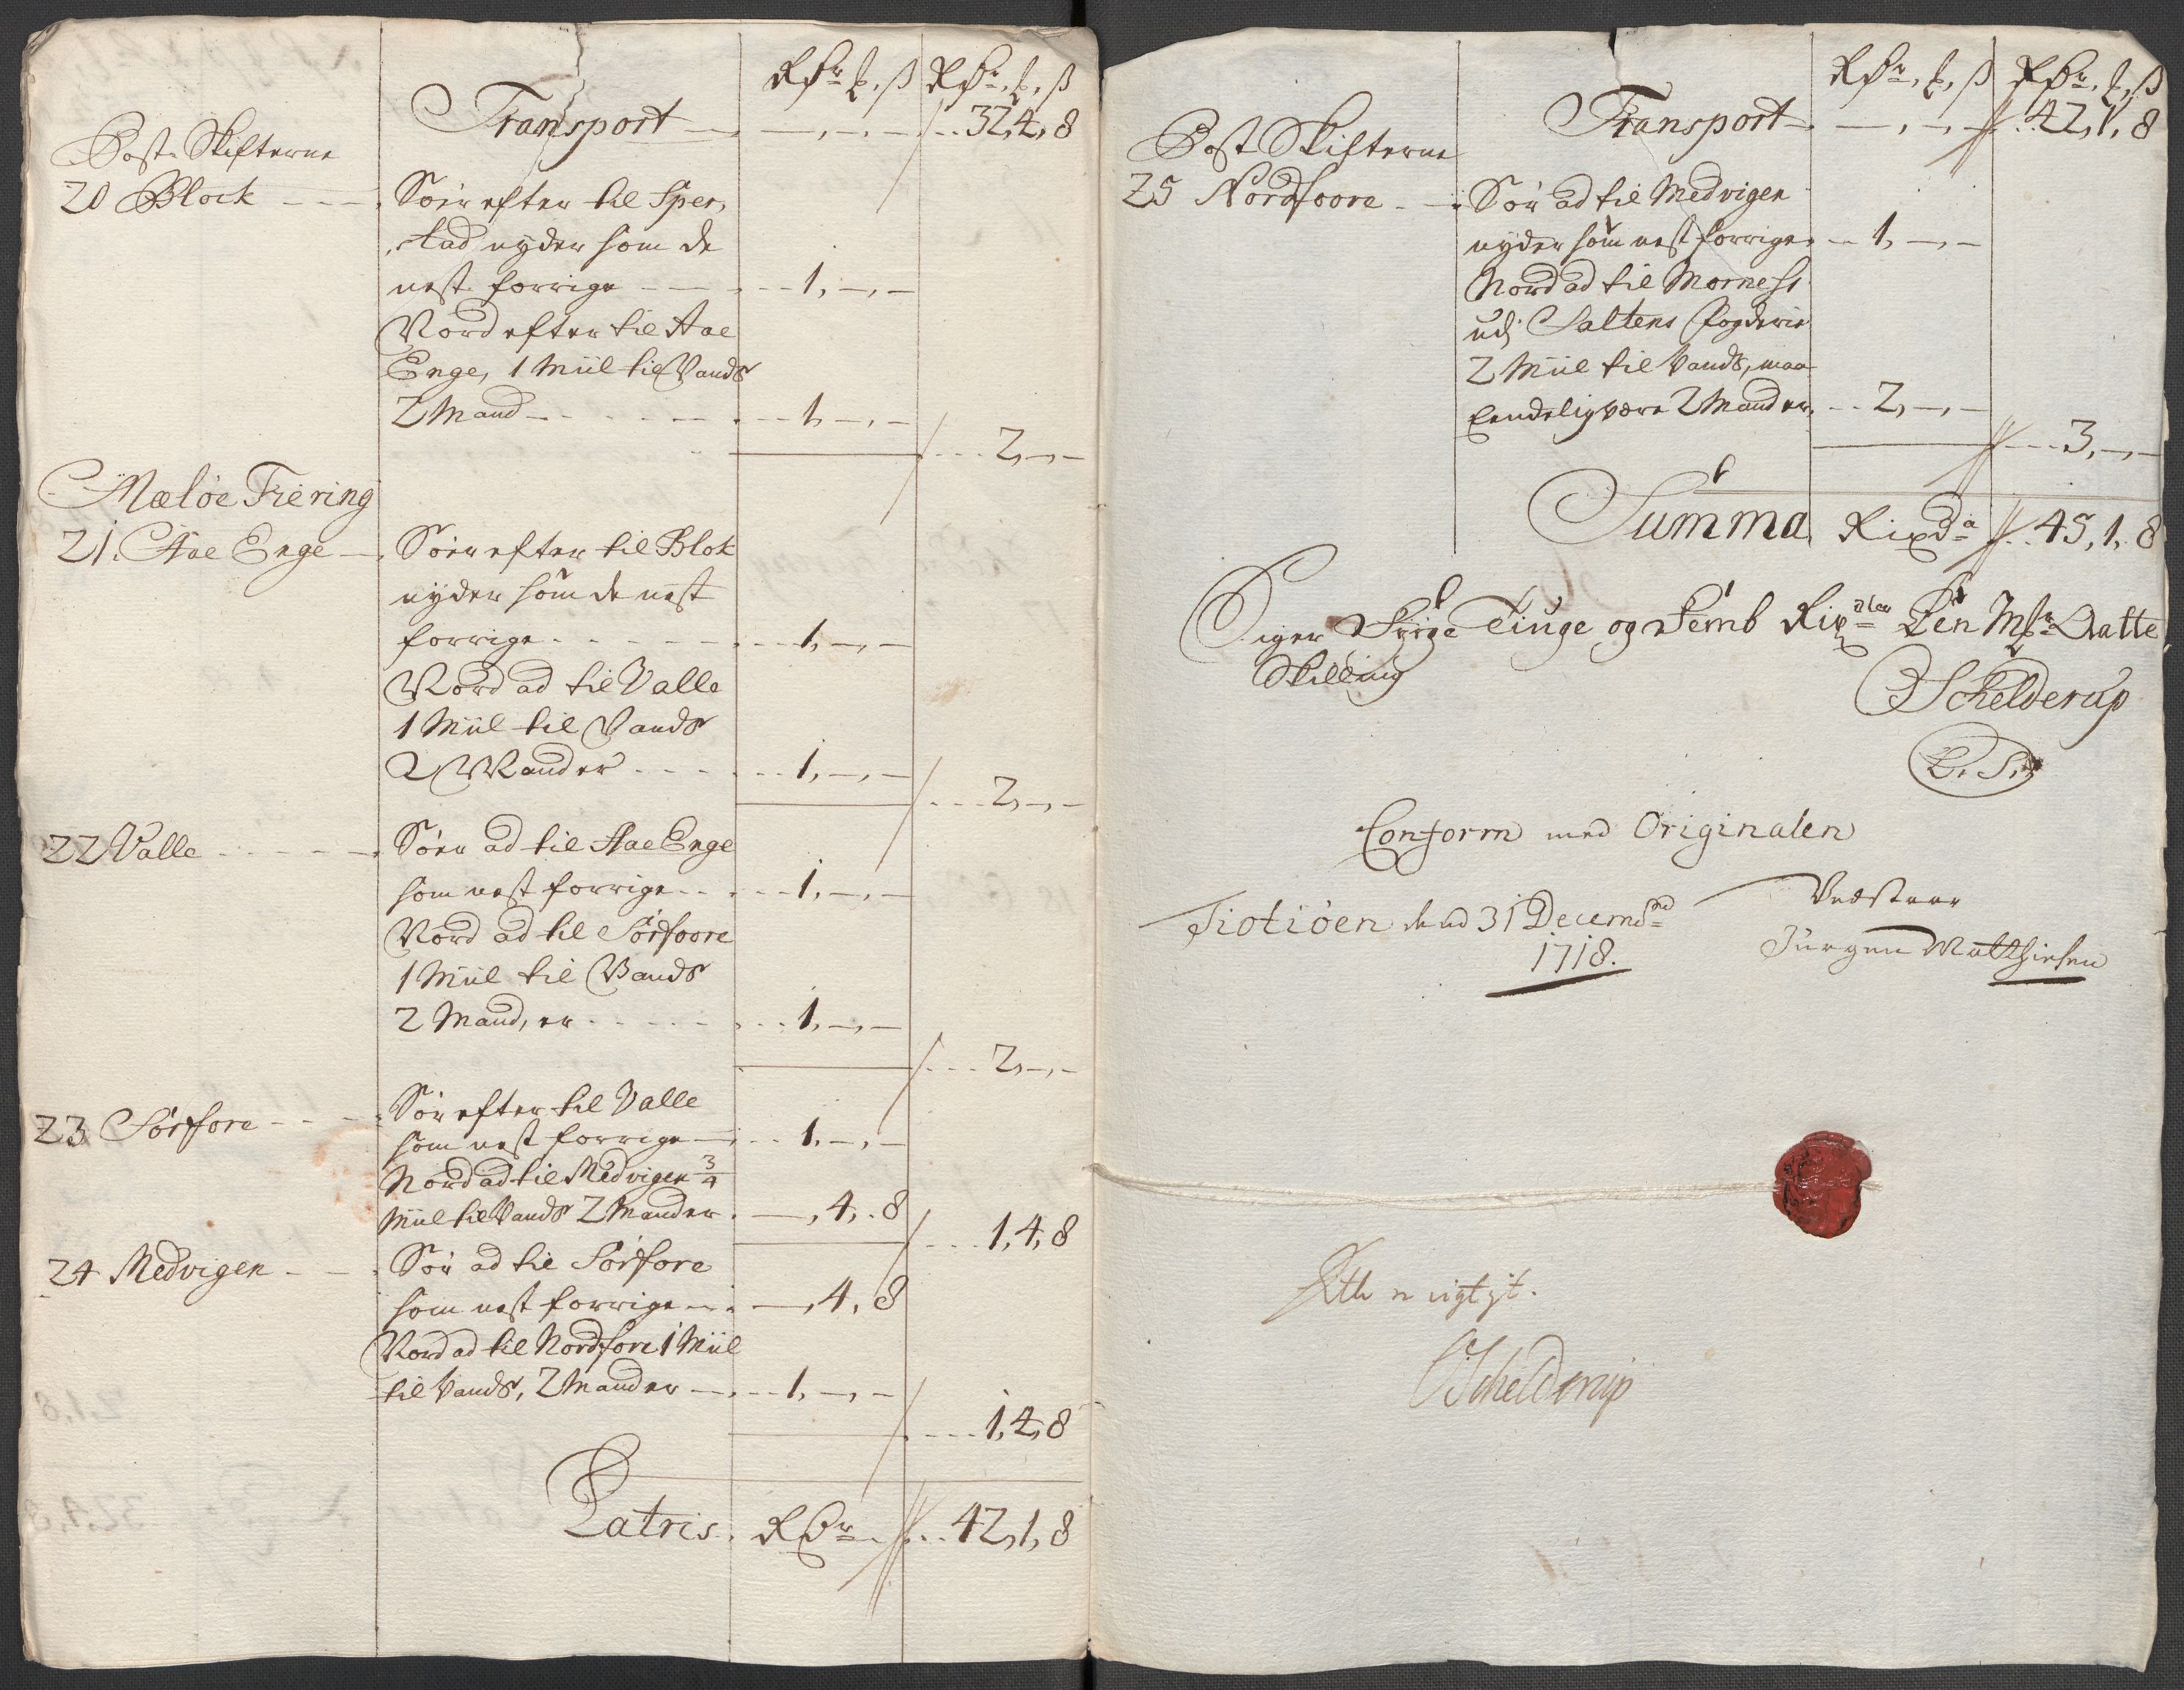 Rdr, ℔, ß Rdr, ℔, ß
Transport 32,4,8
Post Skifterne
20 Block Sør efter til Sper,
stad nyder som de
nest forrige 1,-,-
Nord efter til Aae
Enge, 1 Miil til Vands
2 Mand 1,-,-
2,-,-
Meløe Fiering
21. Aae Enge Søer efter til Blok
nyder som de nest
forrige 1,-,-
Nord ad til Valle
1 Miil til Vands
2 Mander 1,-,-
2,-,-
22 Valle Søer ad til Aae Enge
som nest forrige 1,-,-
Nord ad til Sørfoore
1 Miil til Vands
2 Mand, er 1,-,-
2,-,-
23 Sørfore Sør efter til Valle
som nest forrige 1,-,-
Nord ad til Medvigen 3/4
Miil til Vands 2 Mander -,4,8
1,4,8
24 Medvigen Sør ad til Sørfore
som nest forrige -,4,8
Nord ad til Nordfore 1 Miil
til Vands, 2 Mander 1,-,-
1,4,8
Latris Rdr 42,1,8
Rdr, ℔, ß Rdr, ℔, ß
Transport 42,1,8
Post Skifterne
25 Nordfoore Sør ad til Medvigen
nyder som nest forrige 1,-,-
Nord ad til Morness
udj Saltens Fogderie
2 Miil til Vands, maa
Endelig være 2 Mander 2,-,-
3,-,-
Summa Rixd 45,1,8
Siger Fyrge Tiuge og Femb Rixdler Een Mk Aatte
Skilling
Schelderup
L. S.
Conform med Originalen
Tiotiøen dend 31 Decembr
1718.
Vedstaar
Jürgen Matthiesen
Rigtigt.
Schelderup